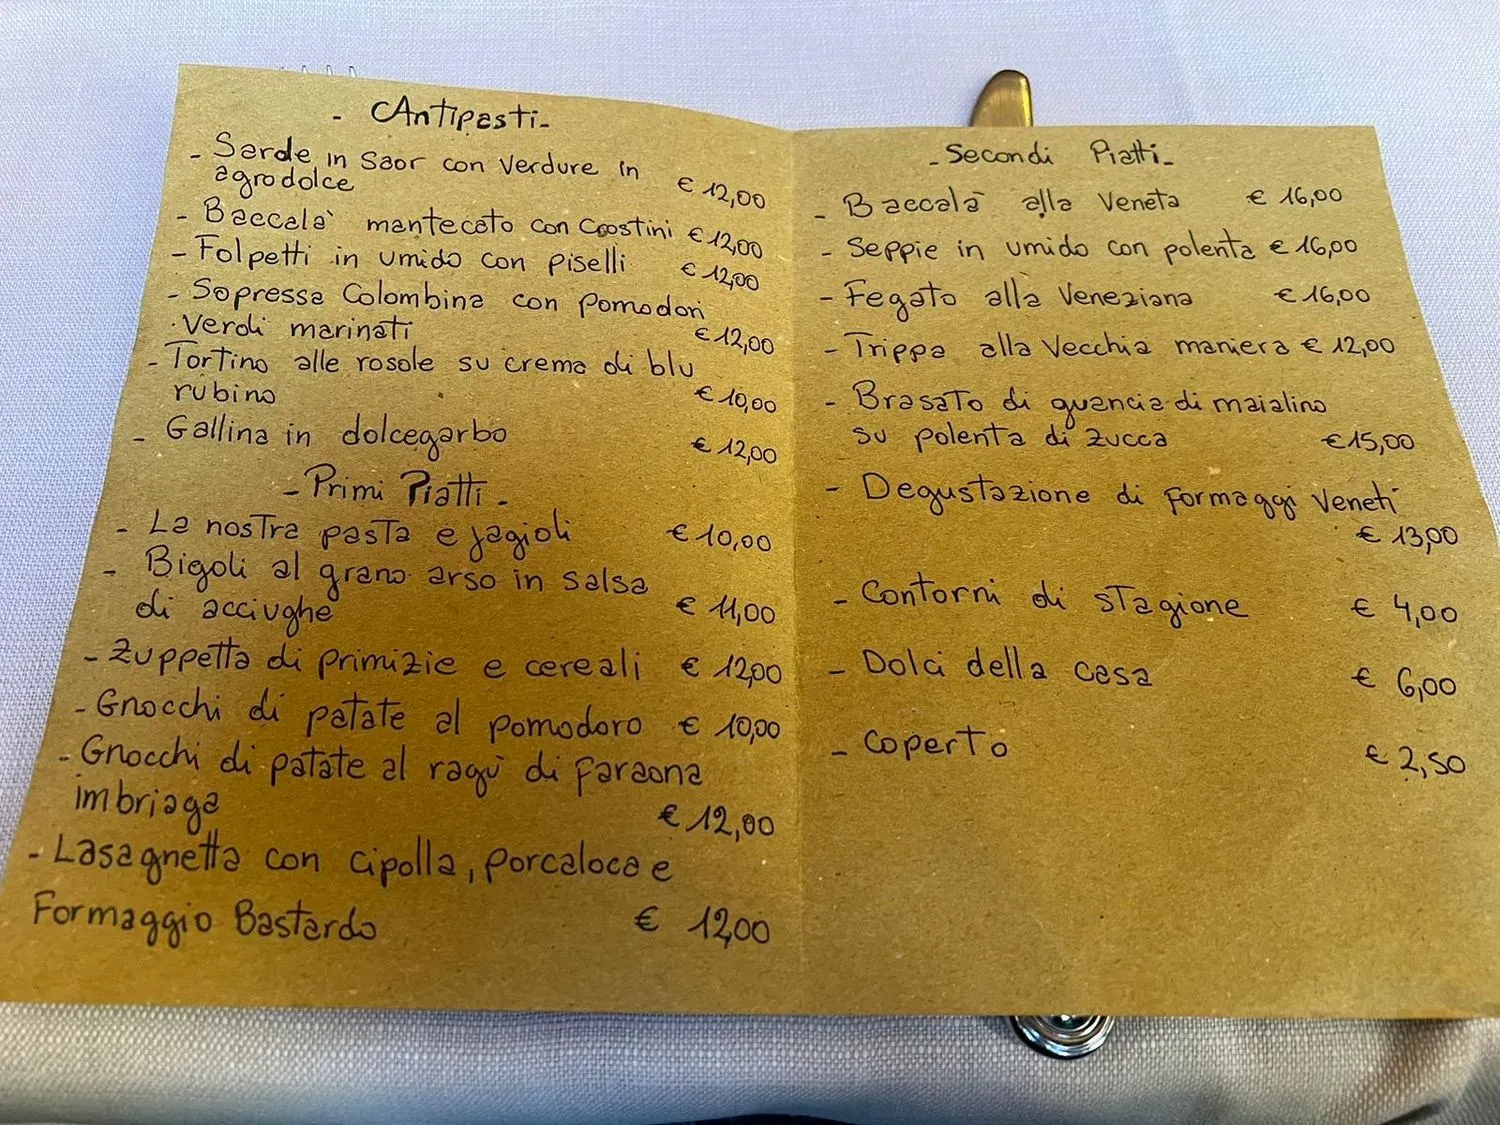 - Antipasti -
- Sarde in Saor con Verdure in
agrodolce € 12,00
- Baccalà mantecato con Crostini € 12,00
- Folpetti in umido con piselli € 12,00
- Sopressa Colombina con pomodori
verdi marinati € 12,00
- Tortino alle rosole su crema di blu
rubino € 10,00
- Gallina in dolcegarbo € 12,00
- Primi Piatti -
- La nostra pasta e fagioli € 10,00
- Bigoli al grano arso in salsa
di acciughe € 11,00
- Zuppetta di primizie e cereali € 12,00
- Gnocchi di patate al pomodoro € 10,00
- Gnocchi di patate al ragù di faraona
imbriaga € 12,00
- Lasagnetta con cipolla, porcaloca e
Formaggio Bastardo € 12,00
- Secondi Piatti -
- Baccalà alla Veneta € 16,00
- Seppie in umido con polenta € 16,00
- Fegato alla Veneziana € 16,00
- Trippa alla Vecchia maniera € 12,00
- Brasato di guancia di maialino
su polenta di zucca € 15,00
- Degustazione di formaggi Veneti
€ 13,00
- Contorni di stagione € 4,00
- Dolci della casa € 6,00
- Coperto € 2,50